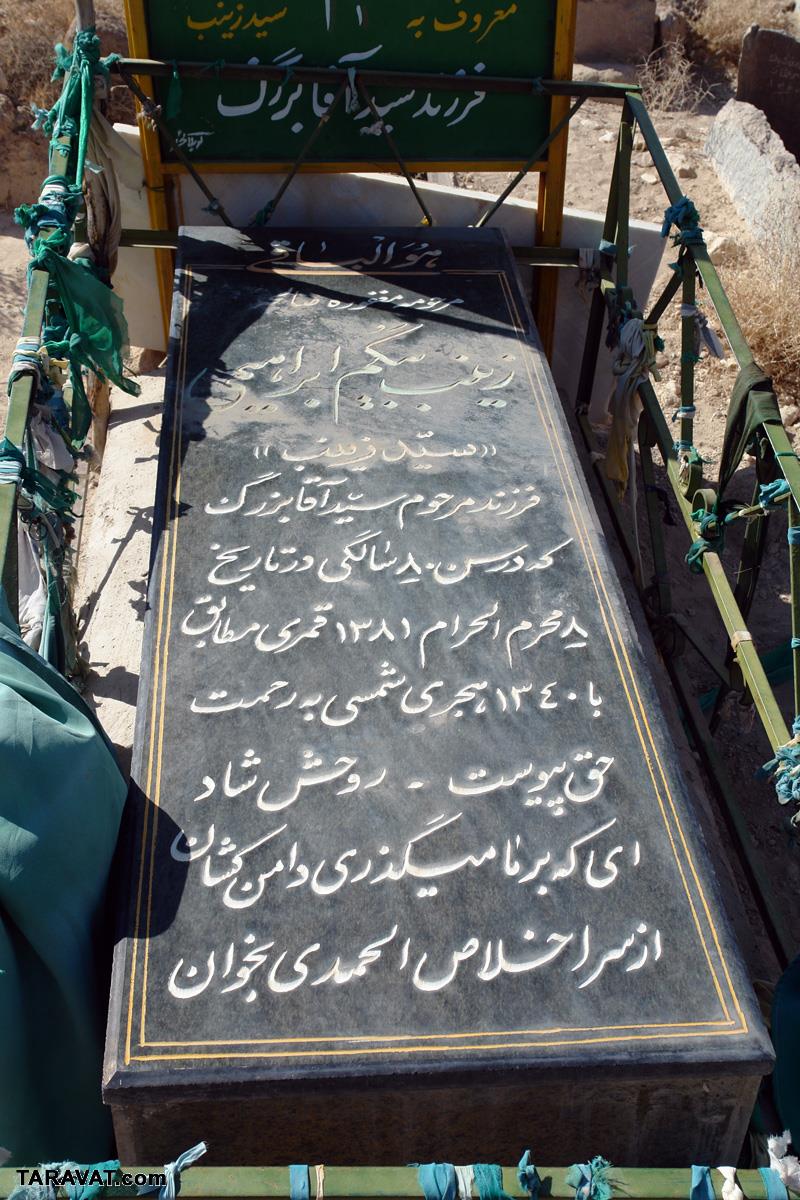 معروف به سید زینب
فرزند سید آقا بزرگ
هو الباقی
مرحومه مغفوره
زینب بیگم ابراهیمی
((سیّد زینب))
فرزند مرحوم سیّد آقا بزرگ
که در سن ۸۰ سالگی در تاریخ
۸ محرم الحرام ۱۳۸۱ قمری مطابق
با ۱۳۴۰ هجری شمسی به رحمت
حق پیوست - روحش شاد
ای که بر ما میگذری دامن کشان
از سر اخلاص الحمدی بخوان
TARAVAT.com